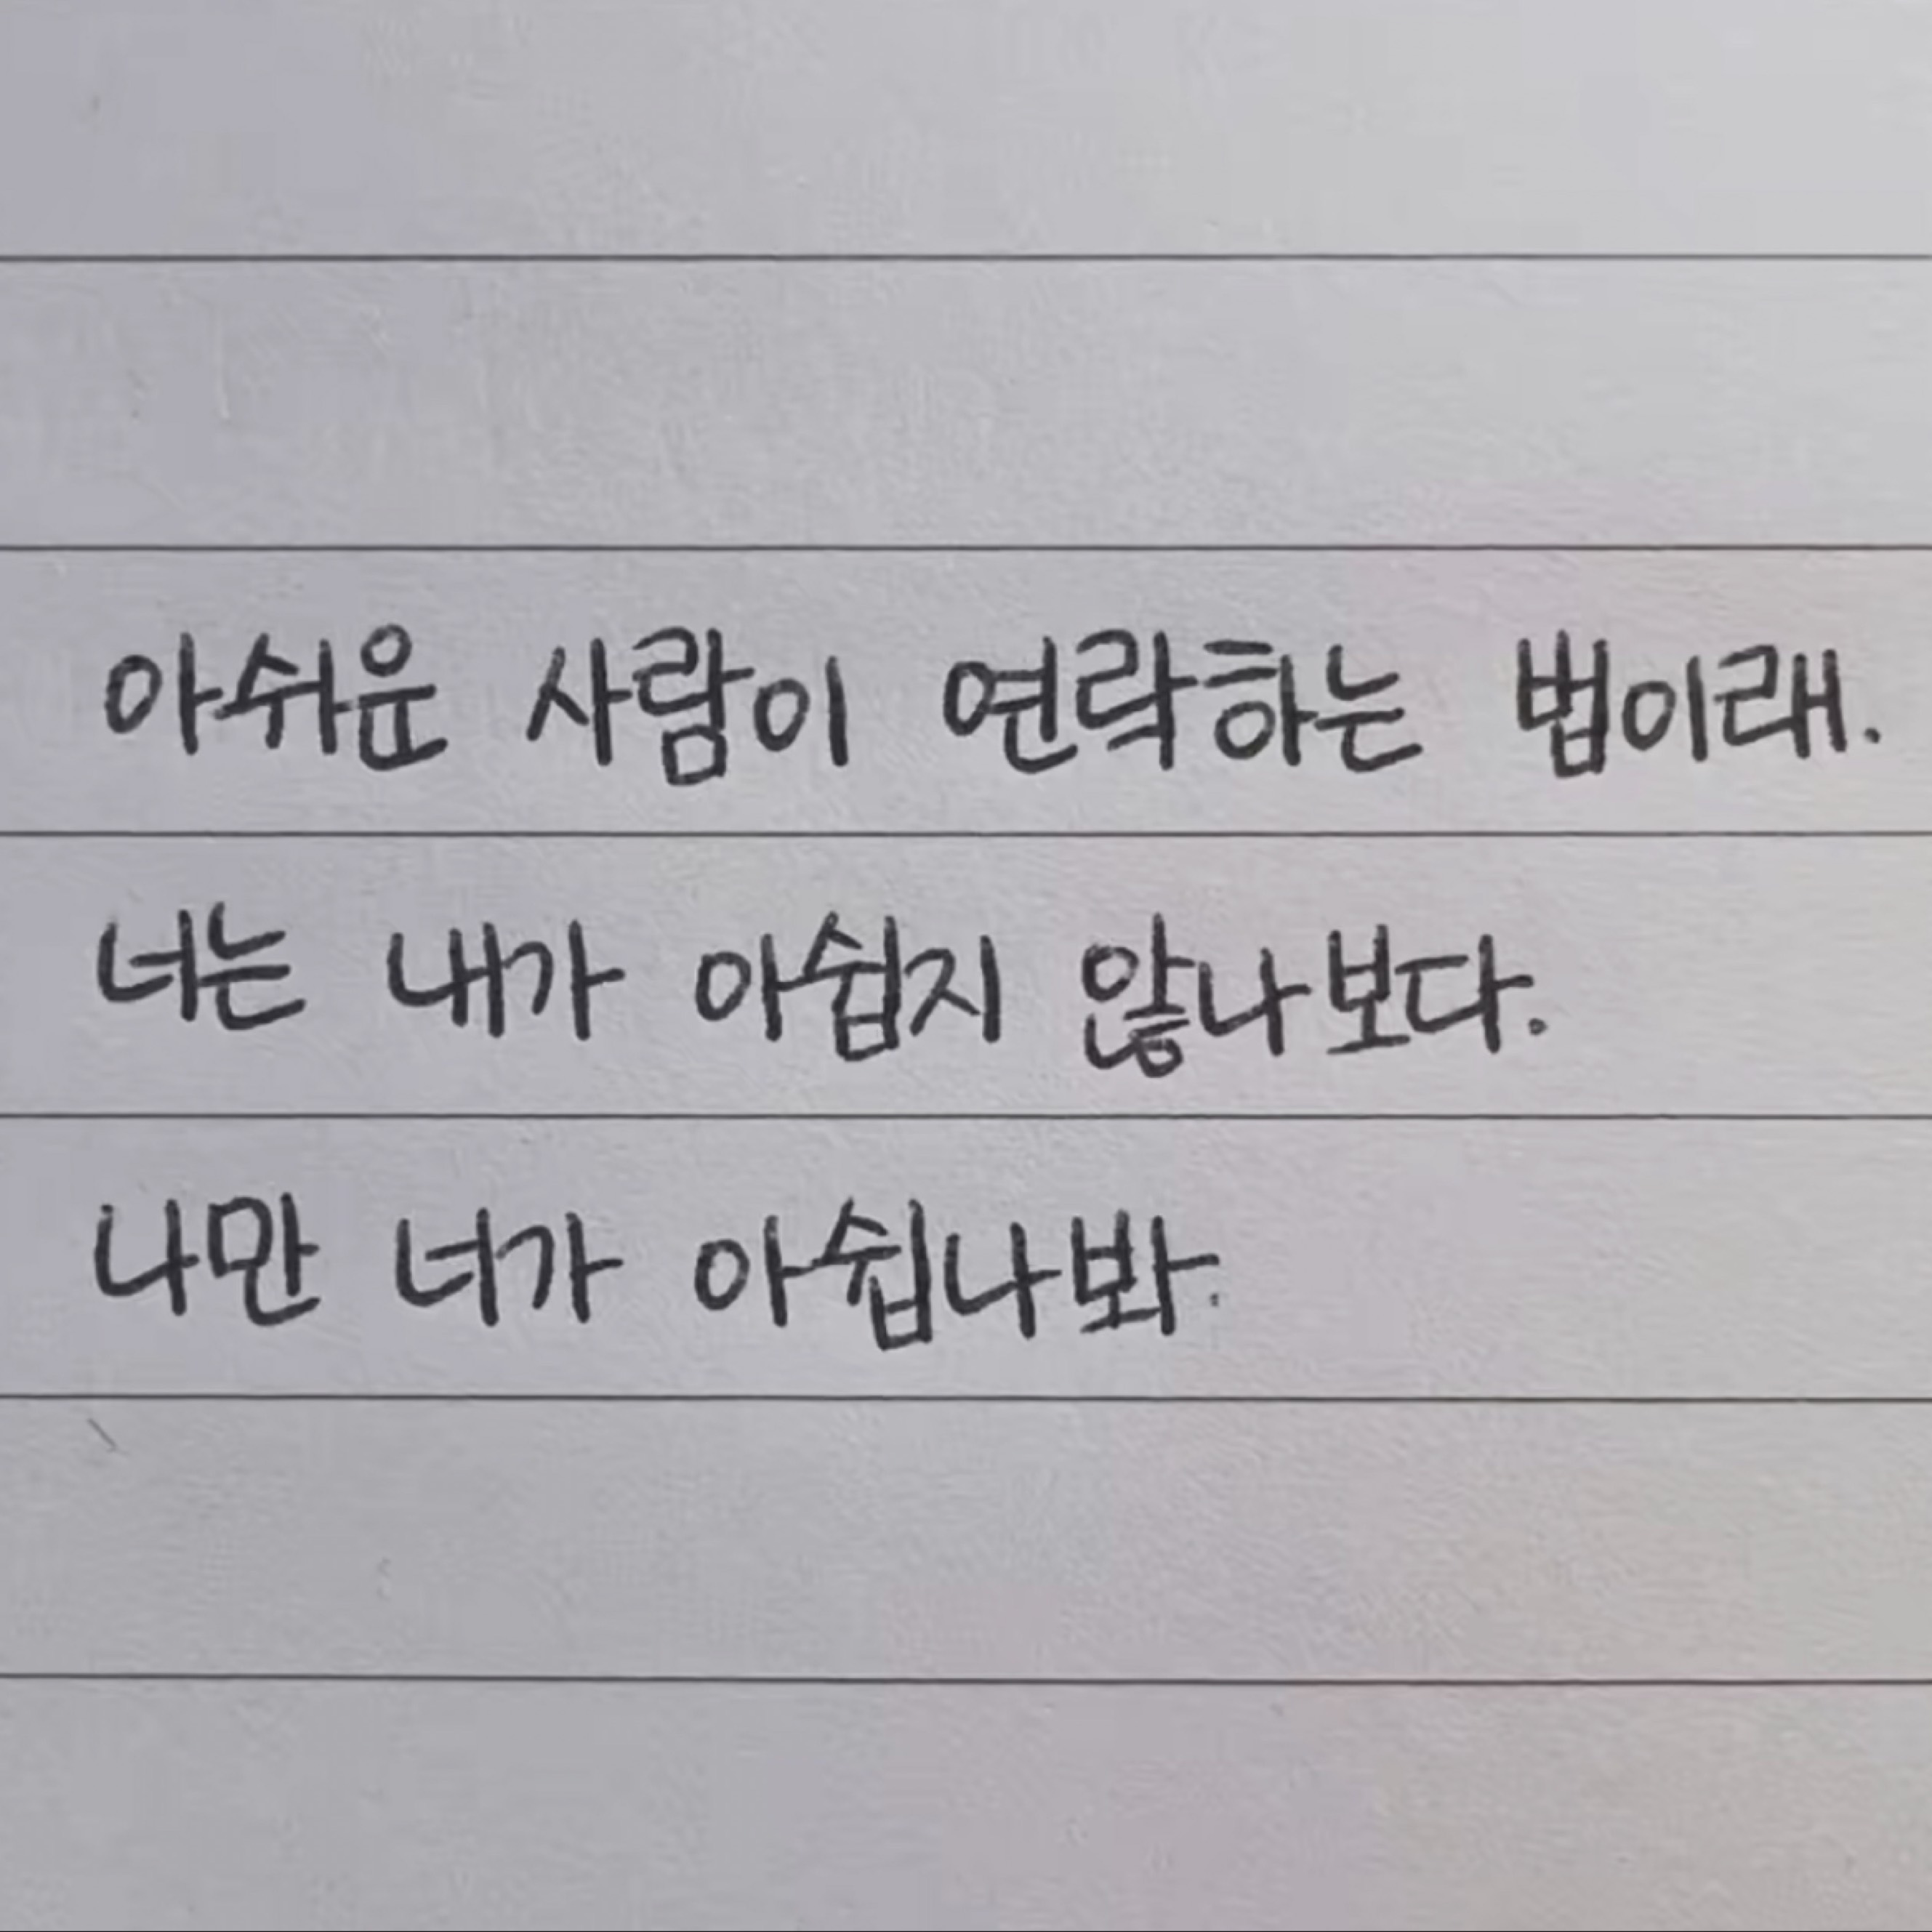 아쉬운 사람이 연락하는 법이래.
너는 내가 아쉽지 않나보다.
나만 너가 아쉽나봐.